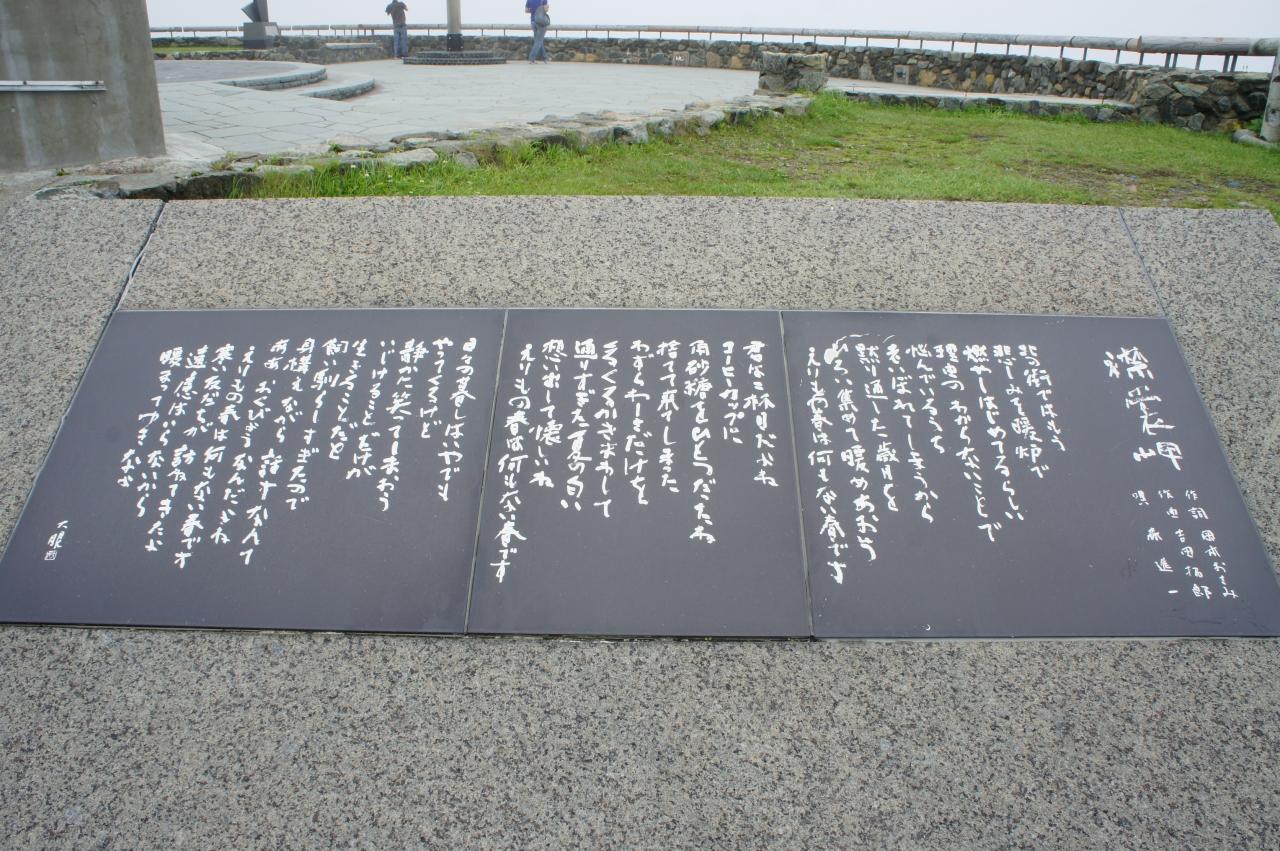 襟裳岬
作詞 岡本おさみ
作曲 吉田拓郎
唄 森進一
北の街ではもう
悲しみを暖炉で
燃やしはじめてるらしい
理由のわからないことで
悩んでいるうち
老いぼれてしまうから
黙り通した歳月を
ひろい集めて暖めあおう
えりもの春は何もない春です
君は二杯目だよね
コーヒーカップに
角砂糖をひとつだったね
捨てて来てしまった
わずらわしさだけを
くるくるかきまわして
通りすぎた夏の匂い
想い出して懐しいね
えりもの春は何もない春です
日々の暮しはいやでも
やってくるけど
静かに笑ってしまおう
いじけることだけが
生きることだと
飼い馴らしすぎたので
身構えながら話すなんて
ああ おくびょうなんだよね
えりもの春は何もない春です
寒い友だちが訪ねてきたよ
遠慮はいらないから
暖まってゆきなよ